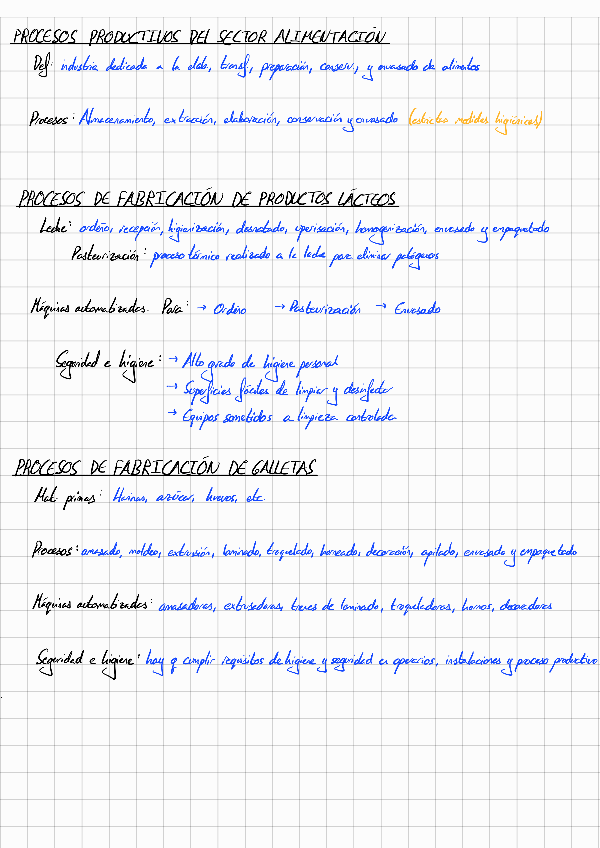 PROCESOS PRODUCTIVOS DEl SECTOR ALIMENTACIÓN
Def: industria dedicada a la elab, transf, preparación, conserv, y envasado de alimentos
Procesos: Almacenamiento, extracción, elaboración, conservación y envasado (estrictas medidas higiénicas)
PROCESOS DE FABRICACIÓN DE PRODUCTOS LÁCTEOS
Leche: ordeño, recepción, higienización, desnatado, uperisación, homogenización, envasado y empaquetado
Pasteurización: proceso térmico realizado a la leche para eliminar patógenos
Máquinas automatizadas. Para: → Ordeño → Pasteurización → Envasado
Seguridad e higiene: → Alto grado de higiene personal
→ Superficies fáciles de limpiar y desinfectar
→ Equipos sometidos a limpieza controlada
PROCESOS DE FABRICACIÓN DE GALLETAS
Mat. primas: Harinas, azúcar, huevos, etc.
Procesos: amasado, moldeo, extrusión, laminado, troquelado, horneado, decoración, apilado, envasado y empaquetado
Máquinas automatizadas: amasadoras, extrusadoras, trenes de laminado, troqueladoras, hornos, decoradoras
Seguridad e higiene: hay q cumplir requisitos de higiene y seguridad en operarios, instalaciones y proceso productivo